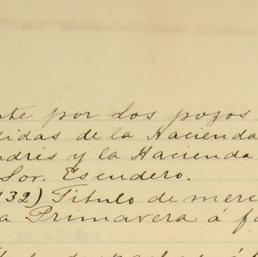 nte por los pozos
didas de la Hacienda
ndrés y la Hacienda
Sor. Escudero.
132) Titulo de merc
a Primavera á f